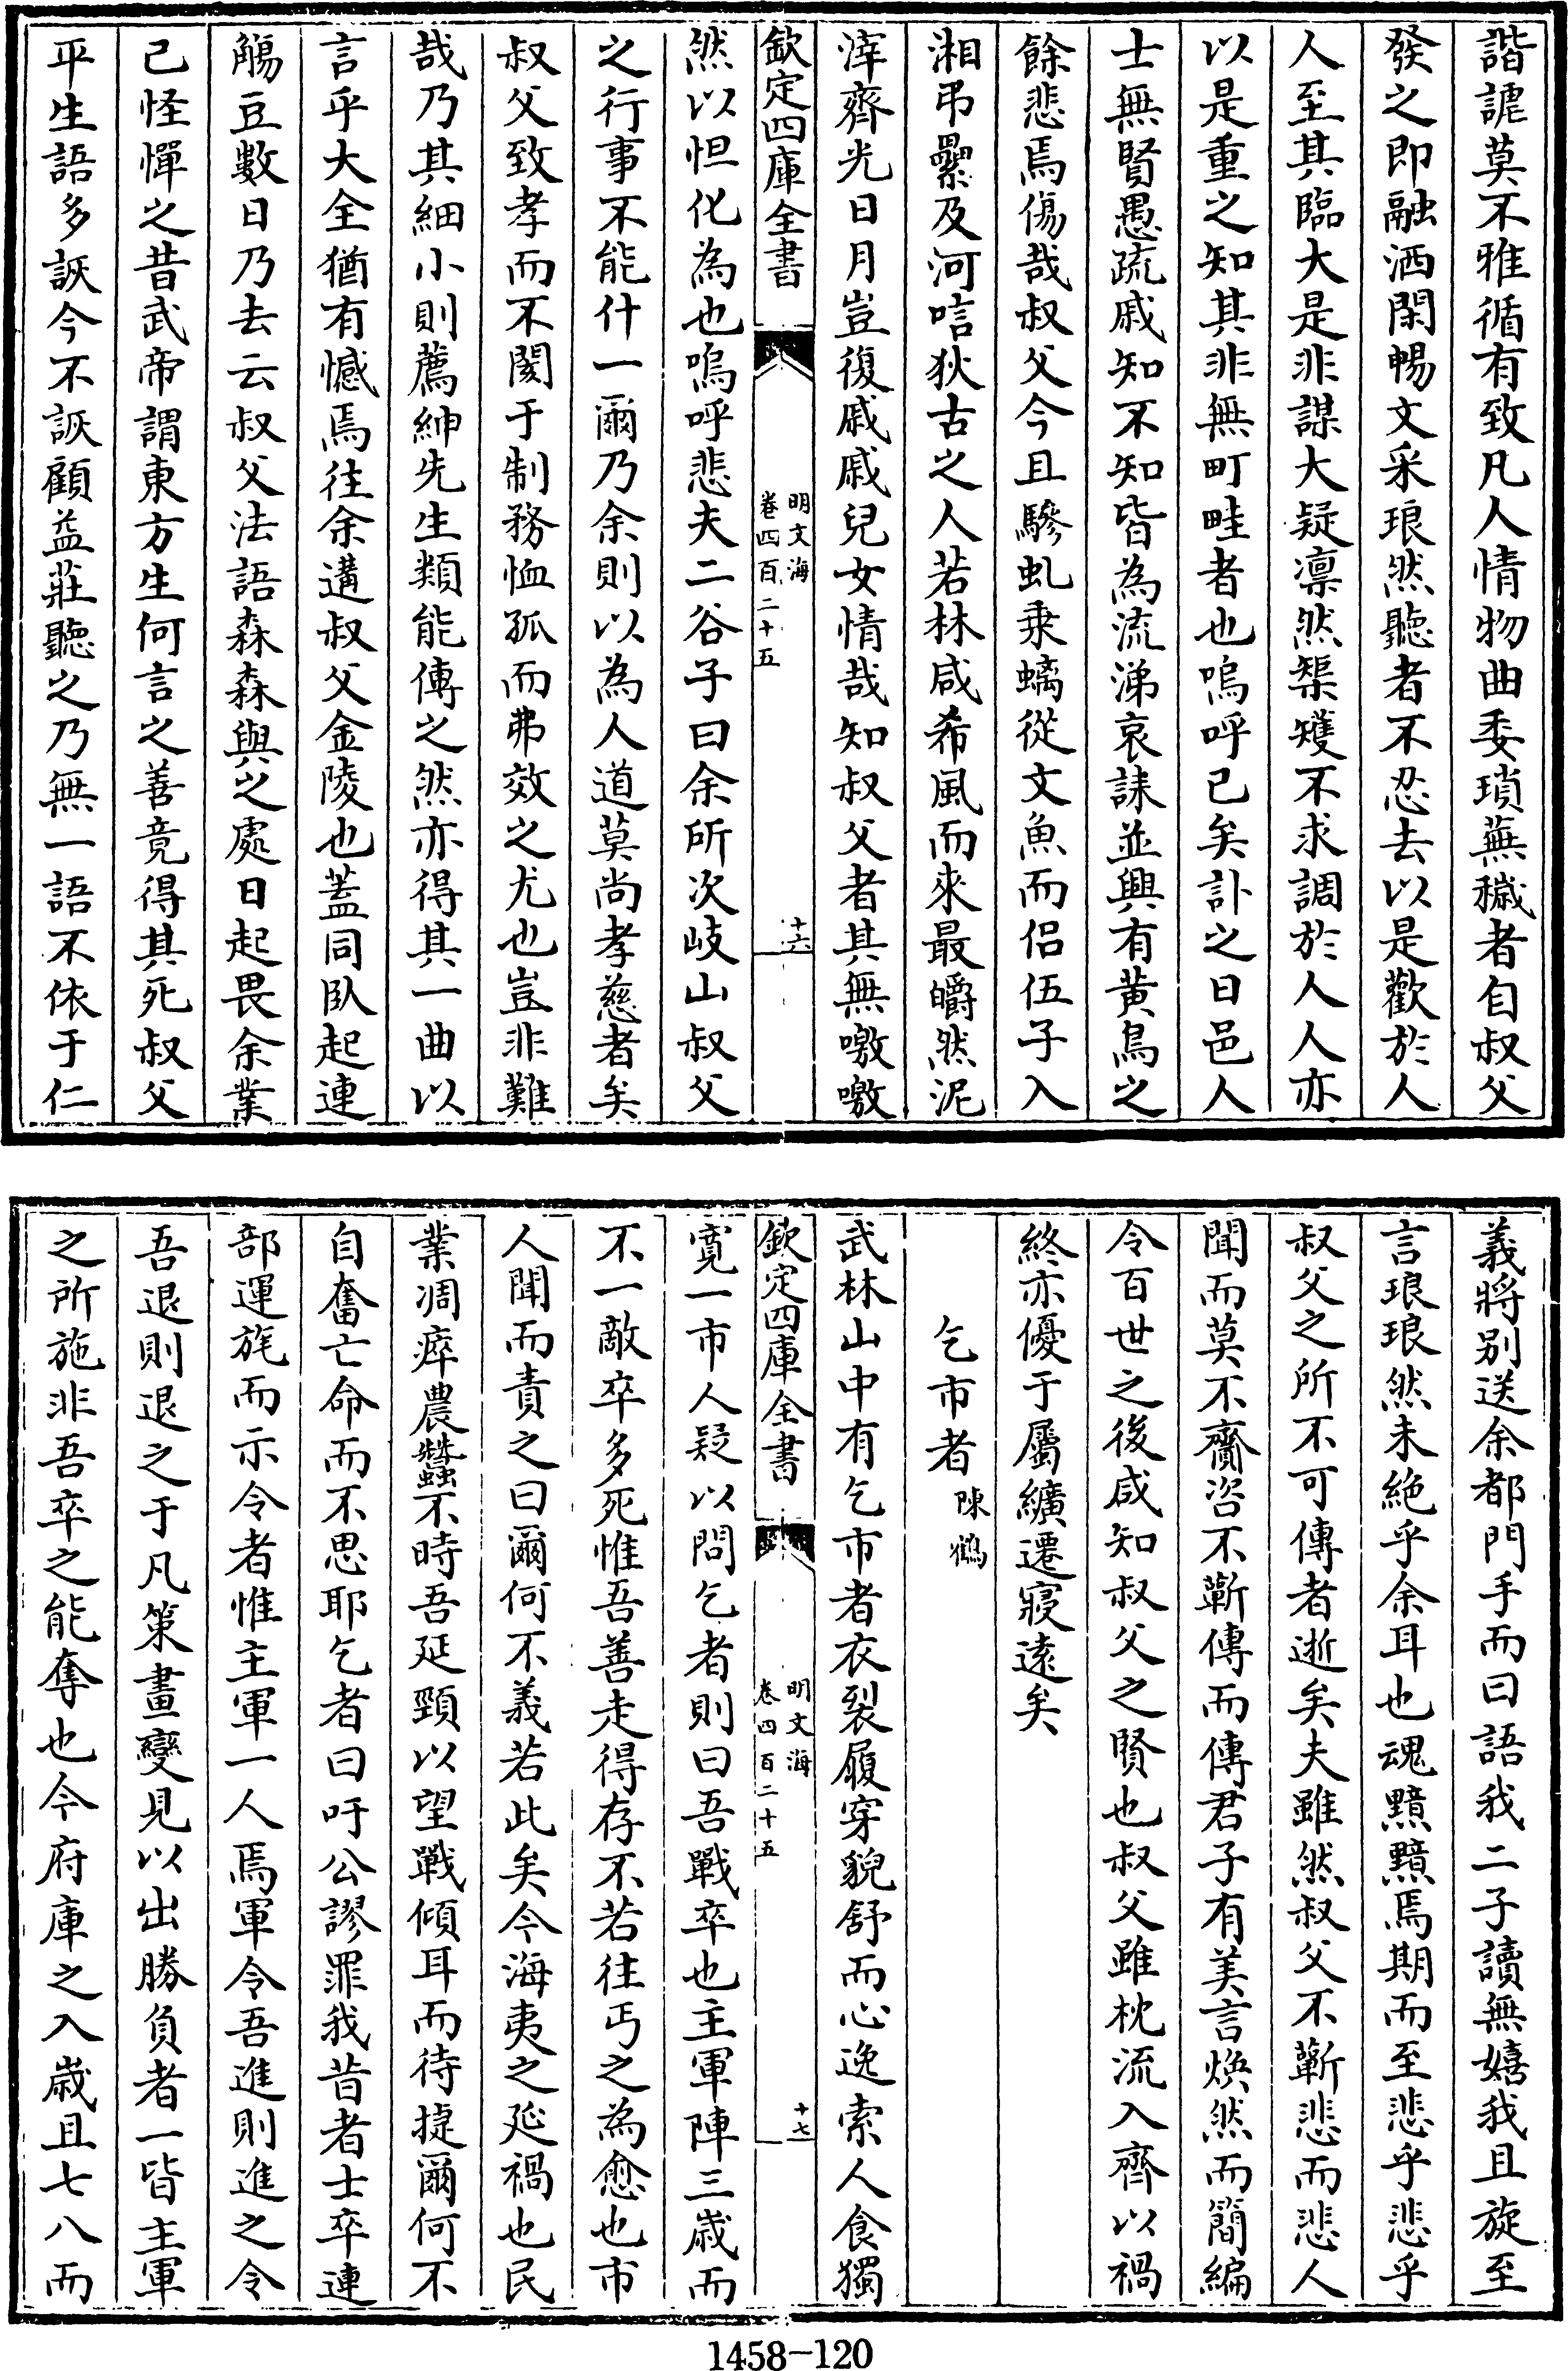 諧謔莫不雅循有致凡人情物曲委瑣蕪穢者自叔父
發之即融洒閑暢文采琅然聽者不忍去以是歡於人
人至其臨大是非謀大疑凛然榘矱不求調於人人亦
以是重之知其非無町畦者也嗚呼已矣訃之日邑人
士無賢愚疏戚知不知皆為流涕哀誄並興有黄鳥之
餘悲焉傷哉叔父今且驂虬乘螭從文魚而侣伍子入
湘弔纍及河唁狄古之人若林咸希風而來最皭然泥
滓齊光日月豈復戚戚兒女情哉知叔父者其無噭噭
欽定四庫全書
明文海
卷四百二十五
十六
然以怛化為也嗚呼悲夫二谷子曰余所次岐山叔父
之行事不能什一爾乃余則以為人道莫尚孝慈者矣
叔父致孝而不閡于制務恤孤而弗效之尤也豈非難
哉乃其細小則薦紳先生類能傳之然亦得其一曲以
言乎大全猶有憾焉往余遘叔父金陵也蓋同卧起連
觴豆數日乃去云叔父法語森森與之處日起畏余業
已怪憚之昔武帝謂東方生何言之善竟得其死叔父
平生語多詼今不詼顧益莊聽之乃無一語不依于仁
義將别送余都門手而曰語我二子讀無嬉我且旋至
言琅琅然未絶乎余耳也魂黯黯焉期而至悲乎悲乎
叔父之所不可傳者逝矣夫雖然叔父不蘄悲而悲人
聞而莫不齎咨不蘄傳而傳君子有美言煥然而簡編
令百世之後咸知叔父之賢也叔父雖枕流入齊以禍
終亦優于屬纊遷寢遠矣
乞市者 陳鶴
武林山中有乞市者衣裂履穿貌舒而心逸索人食獨
欽定四庫全書
明文海
卷四百二十五
十七
寛一市人疑以問乞者則曰吾戰卒也主軍陣三歲而
不一敵卒多死惟吾善走得存不若往丐之為愈也市
人聞而責之曰爾何不義若此矣今海夷之延禍也民
業凋瘁農蠶不時吾延頸以望戰傾耳而待捷爾何不
自奮亡命而不思耶乞者曰吁公謬罪我昔者士卒連
部運旄而示令者惟主軍一人焉軍令吾進則進之令
吾退則退之于凡策畫變見以出勝負者一皆主軍
之所施非吾卒之能奪也今府庫之入歲且七八而
1458-120